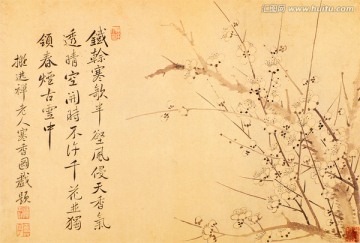 鐵幹寒欹半壁風侵天香氣
透晴空開時不許千花並獨
領春煙古雪中
擬進禪老人寒香圖並題
www.huitu.com